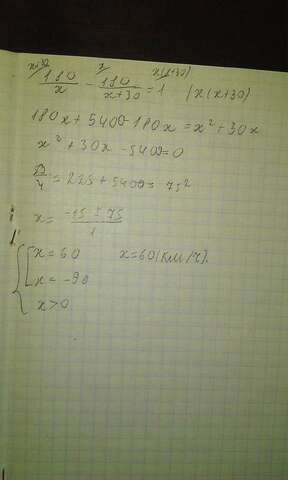 x+30 x x(x+30)
180/x - 180/x+30 = 1 /x(x+30)
180x + 5400 - 180x = x² + 30x
x² + 30x - 5400 = 0
D/4 = 225 + 5400 = 75²
x = -15 ± 75 / 1
x = 60 x = 60 (км/ч).
x = -90
x > 0